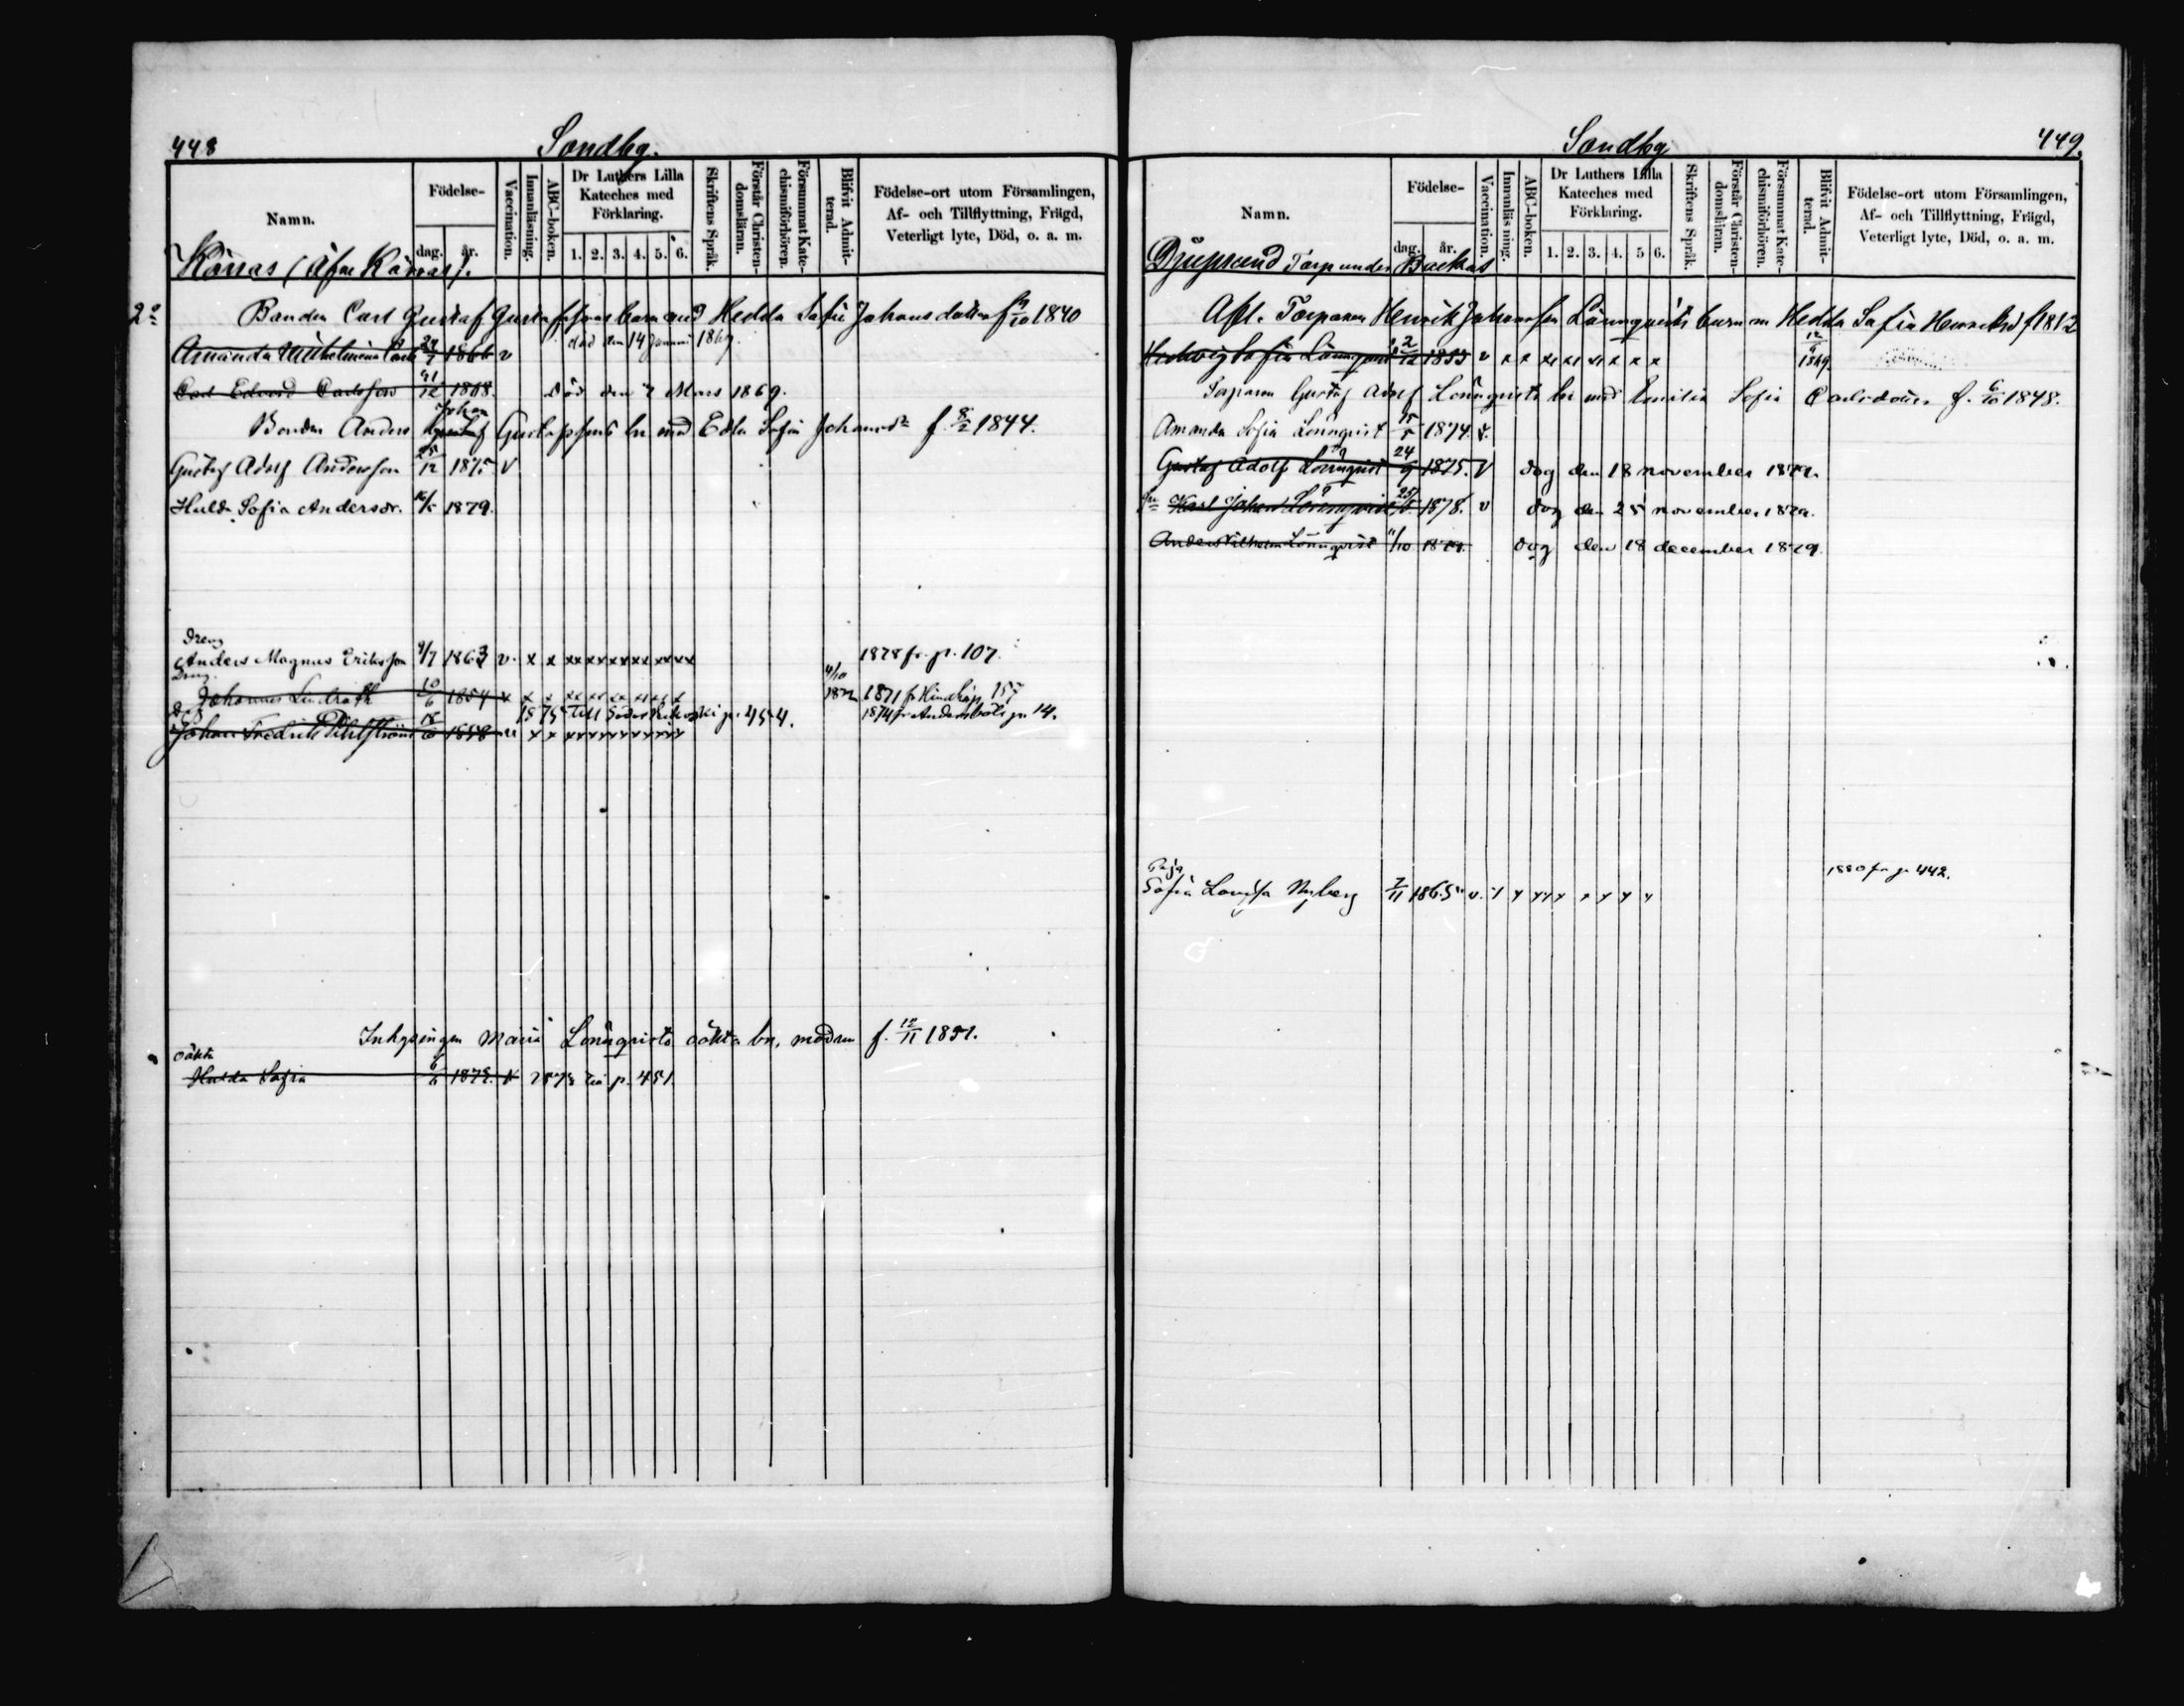 448
Sandbg.
Namn.
Födelse-
dag.
år.
Vaccination.
Innanläsning.
ABC-boken.
Dr Luthers Lilla
Kateches med
Förklaring.
1. 2. 3. 4. 5. 6.
Skriftens Språk.
Förstår Christen-
domsläran.
Försummat Kate-
chismiförhören.
Blifvit Admit-
terad.
Födelse-ort utom Församlingen,
Af- och Tillflyttning, Frägd,
Veterligt lyte, Död, o. a. m.
2o Bonden Carl Gustaf Gustafssons barn med Hedda Sofia Johansdotter 1840
Amanda Wilhelmina 1866 v död den 14 Januari 1869.
Carl Edvard Carlsson 12 1868. död den 7 Mars 1869.
Johan
Bonden Anders Gustafssons bn med Edla Sofia Johansdr f. 8/2 1844.
Gustaf Adolf Andersson 25/12 1875 v
Hulda Sofia Andersdr. 1879.
Dreng
Anders Magnus Eriksson 9/7 1863 v. x x xx xx xx xx xx xx 1878 fr. p. 107.
Dreng.
Johannes 10/6 1854 x x x xx xx xx xx xx x 1871 fr 157
1875 till p. 454. 1874 fr p. 14.
Johan Fredrik 1858 v x x xx xx xx xx xx
Inhysingen Maria Lönnqvists oäkta bn, modren f. 12/11 1851.
oäkta
Hulda Sofia 1872. v till p. 451.
Sandbg
449.
Namn.
Födelse-
dag.
år.
Vaccination.
Innanläsning.
ABC-boken.
Dr Luthers Lilla
Kateches med
Förklaring.
1. 2. 3. 4. 5 6.
Skriftens Språk.
Förstår Christen-
domsläran.
Försummat Kate-
chismiförhören.
Blifvit Admit-
terad.
Födelse-ort utom Församlingen,
Af- och Tillflyttning, Frägd,
Veterligt lyte, Död, o. a. m.
Djupsund Torp under Backas
Afl. Torparen Henrik Johansson Lönnqvists barn m Hedda Sofia Henriksd f 1812
Hedvig Sofia Lönnqvist 2/12 1853 v x x xx xx x x x 1869.
Torparen Gustaf Adolf Lönnqvists bn med Emilia Sofia Carlsdotter f. 6/10 1848.
Amanda Sofia Lönnqvist 15/5 1874. v.
Gustaf Adolf Lönnqvist 24/9 1875. v dog den 18 november 1879.
Karl Johan Lönnqvist 1878. v dog den 25 november 1879.
Anders Vilhelm Lönnqvist 11/10 1879. dog den 18 december 1879.
Piga
Sofia Lovisa Nyberg 7/11 1865 v. x x xx x x x x x 1880 fr p. 442.